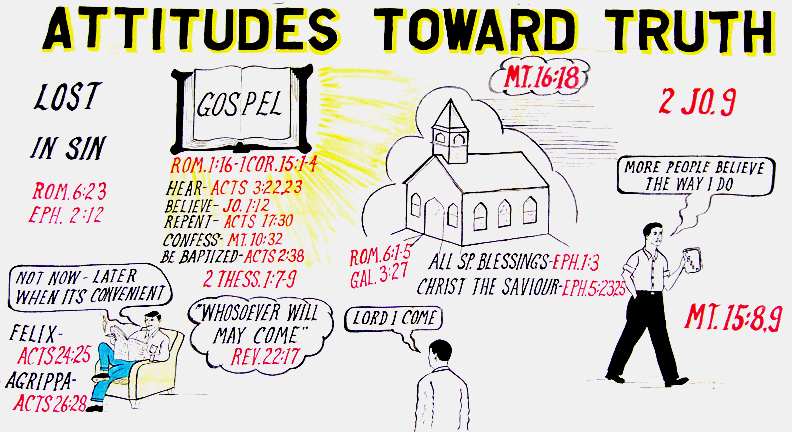 ATTITUDES TOWARD TRUTH
LOST
IN SIN
ROM. 6:23
EPH. 2:12
GOSPEL
ROM. 1:16-1 COR. 15:1-4
HEAR- ACTS 3:22,23
BELIEVE- JO. 1:12
REPENT- ACTS 17:30
CONFESS- MT. 10:32
BE BAPTIZED-ACTS 2:38
2 THESS. 1:7-9
MT. 16:18
2 JO. 9
MORE PEOPLE BELIEVE
THE WAY I DO
MT. 15:8,9
ROM. 6:1-5
GAL. 3:27
ALL SP. BLESSINGS-EPH. 1:3
CHRIST THE SAVIOUR-EPH. 5:23,25
NOT NOW - LATER
WHEN IT'S CONVENIENT
FELIX-
ACTS 24:25
AGRIPPA-
ACTS 26:28
"WHOSOEVER WILL
MAY COME"
REV. 22:17
LORD I COME